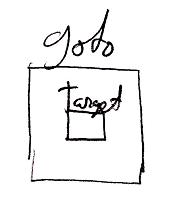 goto
Target